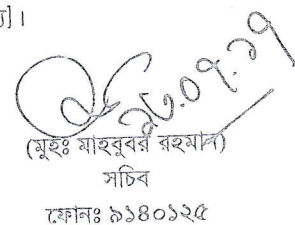 ।
২৩.০৭.১৭
(মুহঃ মাহবুবর রহমান)
সচিব
ফোনঃ ৯১৪০১২৫